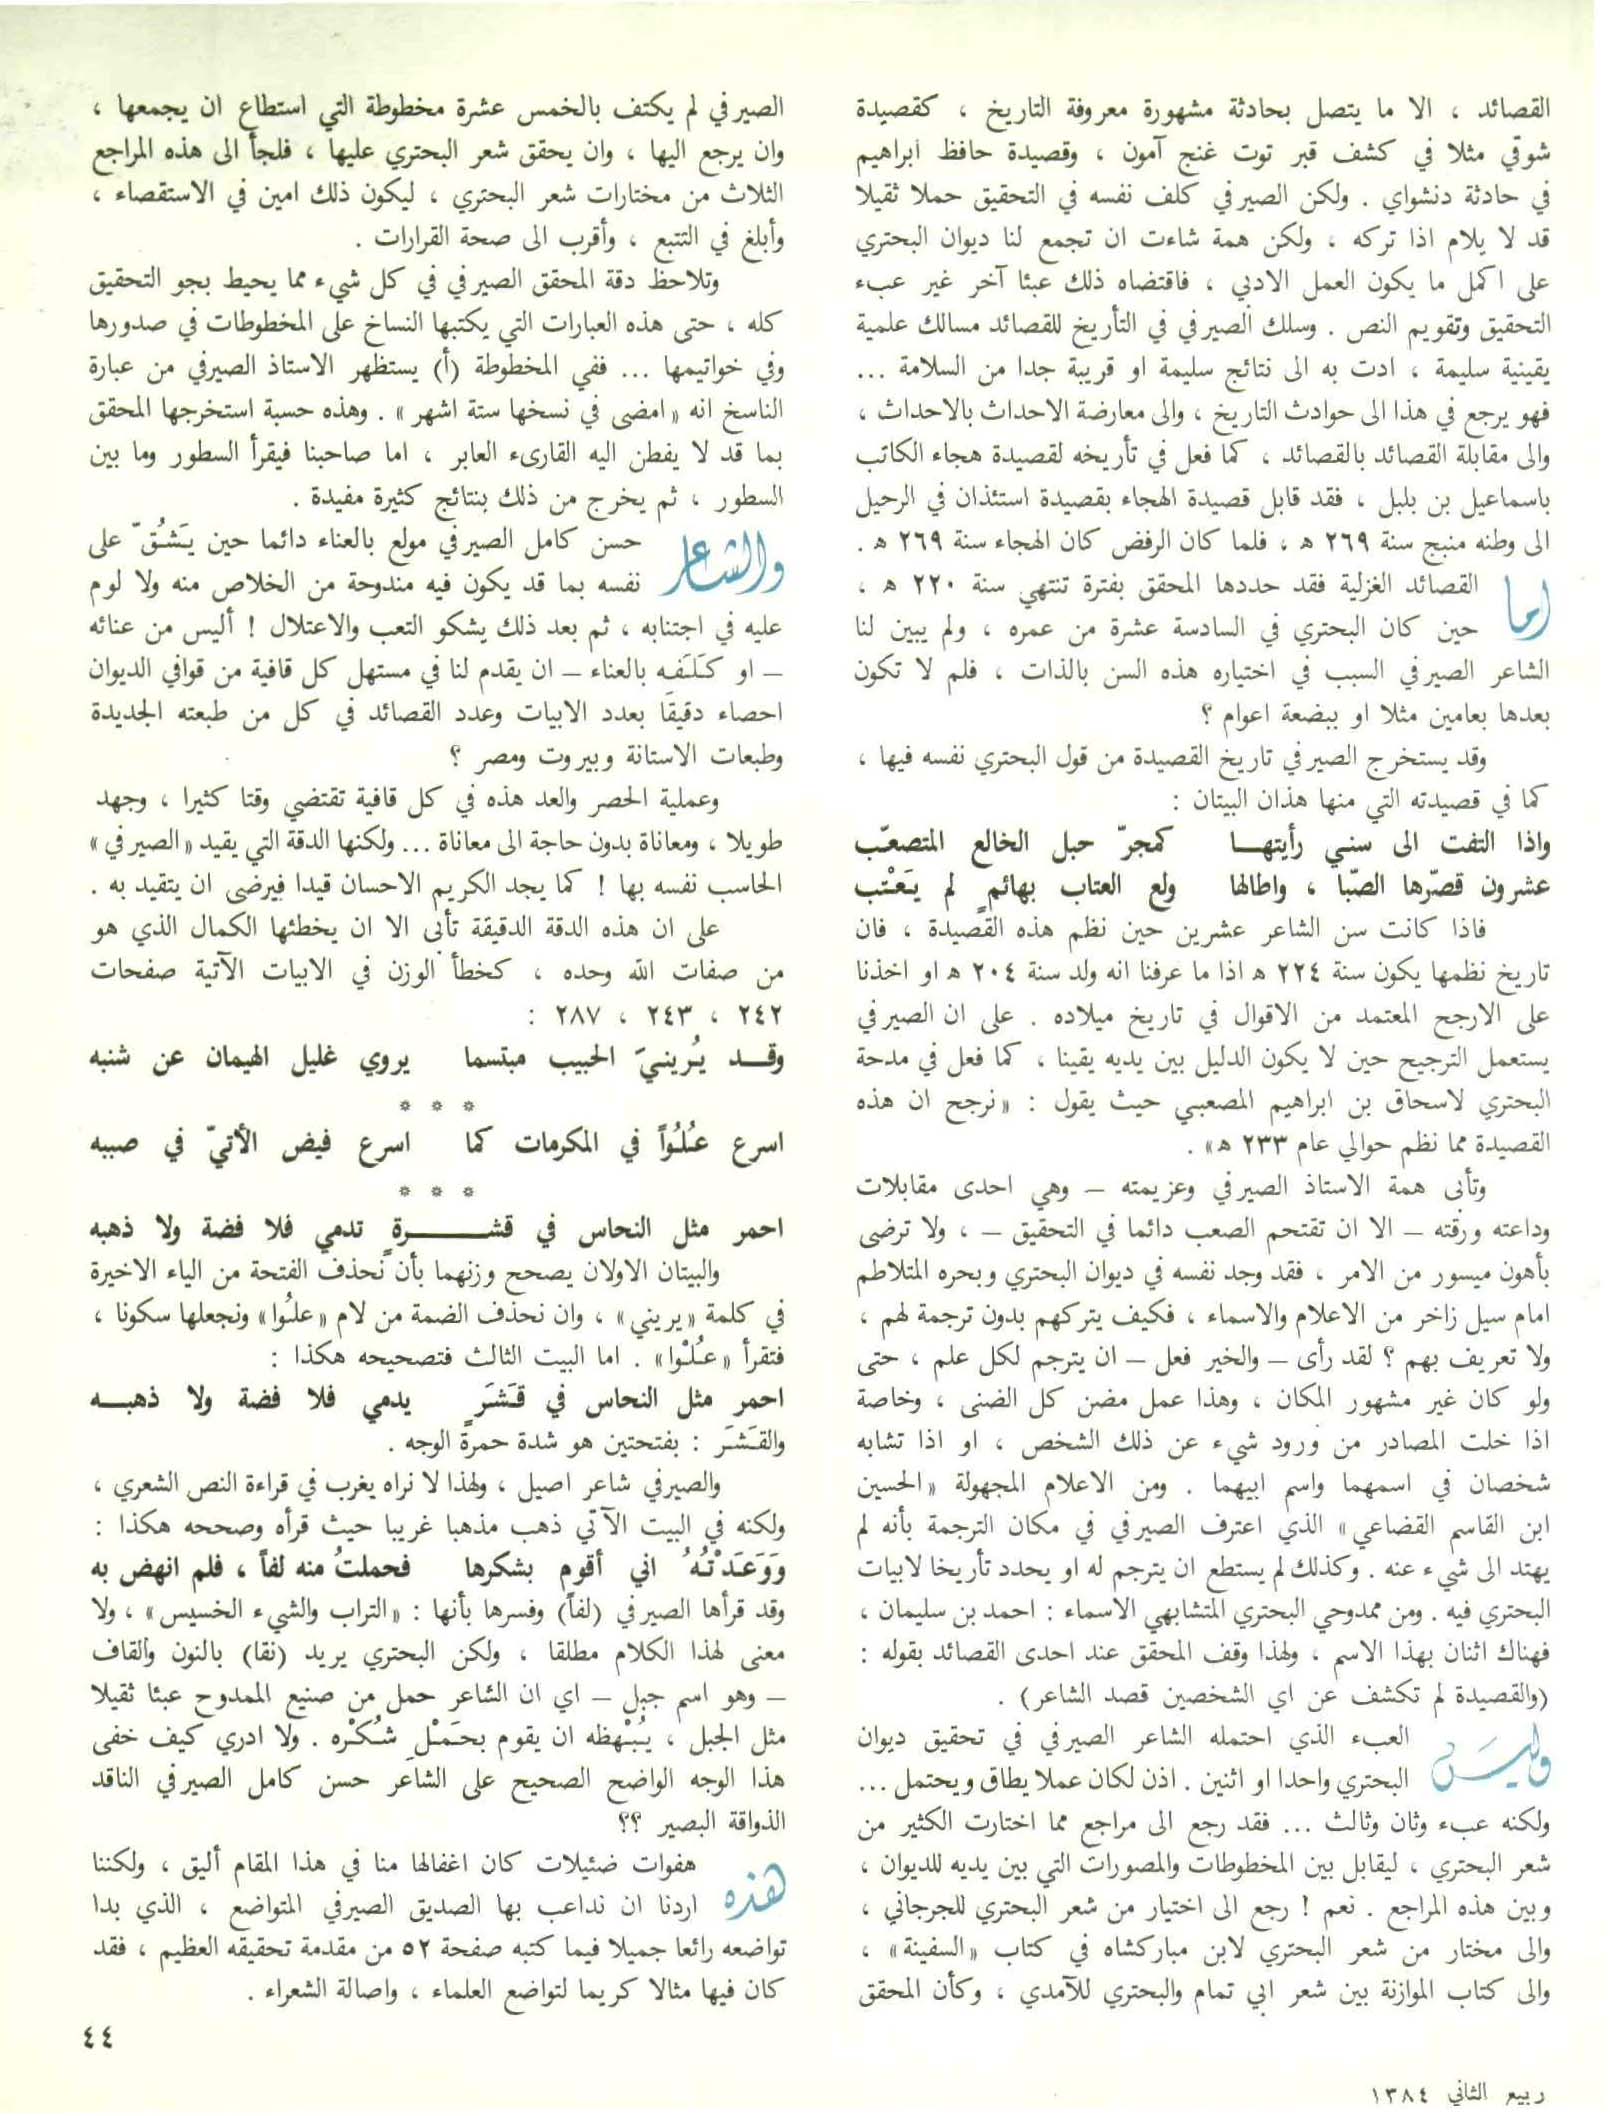 القصائد ، الا ما يتصل بحادثة مشهورة معروفة التاريخ ، كقصيدة
شوقي مثلا في كشف قبر توت غنج آمون ، وقصيدة حافظ ابراهيم
في حادثة دنشواي . ولكن الصيرفي كلف نفسه في التحقيق حملا ثقيلا
قد لا يلام اذا تركه ، ولكن همة شاءت ان تجمع لنا ديوان البحتري
على اكمل ما يكون العمل الادبي ، فاقتضاه ذلك عبئا آخر غير عبء
التحقيق وتقويم النص . وسلك الصيرفي في التأريخ للقصائد مسالك علمية
يقينية سليمة ، ادت به الى نتائج سليمة او قريبة جدا من السلامة ...
فهو يرجع في هذا الى حوادث التاريخ ، والى معارضة الاحداث بالاحداث ،
والى مقابلة القصائد بالقصائد ، كما فعل في تأريخه لقصيدة هجاء الكاتب
باسماعيل بن بلبل ، فقد قابل قصيدة الهجاء بقصيدة استئذان في الرحيل
الى وطنه منبج سنة ٢٦٩ ه ، فلما كان الرفض كان الهجاء سنة ٢٦٩ ه .
اما القصائد الغزلية فقد حددها المحقق بفترة تنتهي سنة ٢٢٠ ه ،
حين كان البحتري في السادسة عشرة من عمره ، ولم يبين لنا
الشاعر الصيرفي السبب في اختياره هذه السن بالذات ، فلم لا تكون
بعدها بعامين مثلا او ببضعة اعوام ؟
وقد يستخرج الصيرفي تاريخ القصيدة من قول البحتري نفسه فيها ،
كما في قصيدته التي منها هذان البيتان :
واذا التفت الى سني رأيتهـا كمجرّ حبل الخالع المتصعّب
عشرون قصّرها الصّبا ، واطالها ولع العتاب بهائمٍ لم يَعْتب
فاذا كانت سن الشاعر عشرين حين نظم هذه القصيدة ، فان
تاريخ نظمها يكون سنة ٢٢٤ ه اذا ما عرفنا انه ولد سنة ٢٠٤ ه او اخذنا
على الارجح المعتمد من الاقوال في تاريخ ميلاده . على ان الصيرفي
يستعمل الترجيح حين لا يكون الدليل بين يديه يقينا ، كما فعل في مدحة
البحتري لاسحاق بن ابراهيم المصعبي حيث يقول : «نرجح ان هذه
القصيدة مما نظم حوالي عام ٢٣٣ ه» .
وتأبى همة الاستاذ الصيرفي وعزيمته – وهي احدى مقابلات
وداعته ورقته – الا ان تقتحم الصعب دائما في التحقيق – ، ولا ترضى
بأهون ميسور من الامر ، فقد وجد نفسه في ديوان البحتري وبحره المتلاطم
امام سيل زاخر من الاعلام والاسماء ، فكيف يتركهم بدون ترجمة لهم ،
ولا تعريف بهم ؟ لقد رأى – والخير فعل – ان يترجم لكل علم ، حتى
ولو كان غير مشهور المكان ، وهذا عمل مضن كل الضنى ، وخاصة
اذا خلت المصادر من ورود شيء عن ذلك الشخص ، او اذا تشابه
شخصان في اسمهما واسم ابيهما . ومن الاعلام المجهولة «الحسين
ابن القاسم القضاعي» الذي اعترف الصيرفي في مكان الترجمة بأنه لم
يهتد الى شيء عنه . وكذلك لم يستطع ان يترجم له او يحدد تأريخا لابيات
البحتري فيه . ومن ممدوحي البحتري المتشابهي الاسماء : احمد بن سليمان ،
فهناك اثنان بهذا الاسم ، ولهذا وقف المحقق عند احدى القصائد بقوله :
(والقصيدة لم تكشف عن اي الشخصين قصد الشاعر) .
وليس العبء الذي احتمله الشاعر الصيرفي في تحقيق ديوان
البحتري واحدا او اثنين . اذن لكان عملا يطاق ويحتمل ...
ولكنه عبء وثان وثالث ... فقد رجع الى مراجع مما اختارت الكثير من
شعر البحتري ، ليقابل بين المخطوطات والمصورات التي بين يديه للديوان ،
وبين هذه المراجع . نعم ! رجع الى اختيار من شعر البحتري للجرجاني ،
والى مختار من شعر البحتري لابن مباركشاه في كتاب «السفينة» ،
والى كتاب الموازنة بين شعر ابي تمام والبحتري للآمدي ، وكأن المحقق
الصيرفي لم يكتف بالخمس عشرة مخطوطة التي استطاع ان يجمعها ،
وان يرجع اليها ، وان يحقق شعر البحتري عليها ، فلجأ الى هذه المراجع
الثلاث من مختارات شعر البحتري ، ليكون ذلك امين في الاستقصاء ،
وأبلغ في التتبع ، وأقرب الى صحة القرارات .
وتلاحظ دقة المحقق الصيرفي في كل شيء مما يحيط بجو التحقيق
كله ، حتى هذه العبارات التي يكتبها النساخ على المخطوطات في صدورها
وفي خواتيمها ... ففي المخطوطة (أ) يستظهر الاستاذ الصيرفي من عبارة
الناسخ انه «امضى في نسخها ستة اشهر» . وهذه حسبة استخرجها المحقق
بما قد لا يفطن اليه القارىء العابر ، اما صاحبنا فيقرأ السطور وما بين
السطور ، ثم يخرج من ذلك بنتائج كثيرة مفيدة .
والشاعر حسن كامل الصيرفي مولع بالعناء دائما حين يَشُقّ على
نفسه بما قد يكون فيه مندوحة من الخلاص منه ولا لوم
عليه في اجتنابه ، ثم بعد ذلك يشكو التعب والاعتلال ! أليس من عنائه
– او كَلَفه بالعناء – ان يقدم لنا في مستهل كل قافية من قوافي الديوان
احصاء دقيقا بعدد الابيات وعدد القصائد في كل من طبعته الجديدة
وطبعات الاستانة وبيروت ومصر ؟
وعملية الحصر والعد هذه في كل قافية تقتضي وقتا كثيرا ، وجهد
طويلا ، ومعاناة بدون حاجة الى معاناة ... ولكنها الدقة التي يقيد «الصيرفي»
الحاسب نفسه بها ! كما يجد الكريم الاحسان قيدا فيرضى ان يتقيد به .
على ان هذه الدقة الدقيقة تأبى الا ان يخطئها الكمال الذي هو
من صفات الله وحده ، كخطأ الوزن في الابيات الآتية صفحات
٢٤٢ ، ٢٤٣ ، ٢٨٧ :
وقـد يُرينيَ الحبيب مبتسما يروي غليل الهيمان عن شنبه
* * *
اسرع عُلُوّاً في المكرمات كما اسرع فيض الأتيّ في صببه
* * *
احمر مثل النحاس في قشـرةٍ تدمي فلا فضة ولا ذهبه
والبيتان الاولان يصحح وزنهما بأن نحذف الفتحة من الياء الاخيرة
في كلمة «يريني» ، وان نحذف الضمة من لام «علُوا» ونجعلها سكونا ،
فتقرأ «عُلْوا» . اما البيت الثالث فتصحيحه هكذا :
احمر مثل النحاس في قَشَرٍ يدمي فلا فضة ولا ذهبـه
والقَشَر : بفتحتين هو شدة حمرة الوجه .
والصيرفي شاعر اصيل ، ولهذا لا نراه يغرب في قراءة النص الشعري ،
ولكنه في البيت الآتي ذهب مذهبا غريبا حيث قرأه وصححه هكذا :
وَوَعَدْتُهُ اني أقوم بشكرها فحملتُ منه لفاً ، فلم انهض به
وقد قرأها الصيرفي (لفاً) وفسرها بأنها : «التراب والشيء الخسيس» ، ولا
معنى لهذا الكلام مطلقا ، ولكن البحتري يريد (نقا) بالنون والقاف
– وهو اسم جبل – اي ان الشاعر حمل من صنيع الممدوح عبئا ثقيلا
مثل الجبل ، يُبْهظه ان يقوم بحَمْل شُكْره . ولا ادري كيف خفى
هذا الوجه الواضح الصحيح على الشاعر حسن كامل الصيرفي الناقد
الذواقة البصير ؟؟
هذه هفوات ضئيلات كان اغفالها منا في هذا المقام أليق ، ولكننا
اردنا ان نداعب بها الصديق الصيرفي المتواضع ، الذي بدا
تواضعه رائعا جميلا فيما كتبه صفحة ٥٢ من مقدمة تحقيقه العظيم ، فقد
كان فيها مثالا كريما لتواضع العلماء ، واصالة الشعراء .
٤٤
ربيع الثاني ١٣٨٤